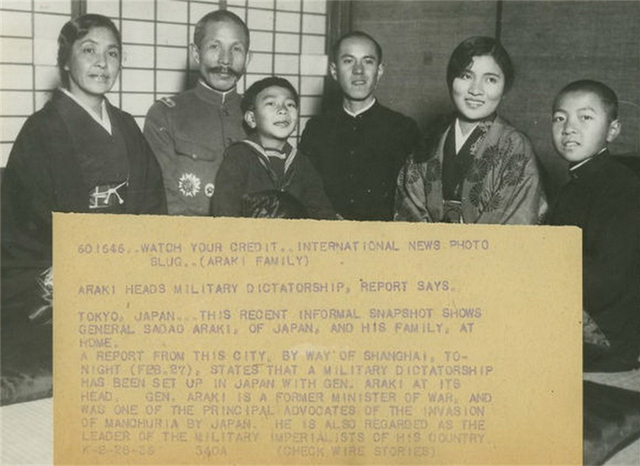 601646..WATCH YOUR CREDIT..INTERNATIONAL NEWS PHOTO
SLUG..(ARAKI FAMILY)
ARAKI HEADS MILITARY DICTATORSHIP, REPORT SAYS.
TOKYO, JAPAN...THIS RECENT INFORMAL SNAPSHOT SHOWS
GENERAL SADAO ARAKI, OF JAPAN, AND HIS FAMILY, AT
HOME.
A REPORT FROM THIS CITY, BY WAY OF SHANGHAI, TO-
NIGHT (FEB.27), STATES THAT A MILITARY DICTATORSHIP
HAS BEEN SET UP IN JAPAN WITH GEN. ARAKI AT ITS
HEAD. GEN. ARAKI IS A FORMER MINISTER OF WAR, AND
WAS ONE OF THE PRINCIPAL ADVOCATES OF THE INVASION
OF MANCHURIA BY JAPAN. HE IS ALSO REGARDED AS THE
LEADER OF THE MILITARY IMPERIALISTS OF HIS COUNTRY.
K-2-26-36 340A (CHECK WIRE STORIES)